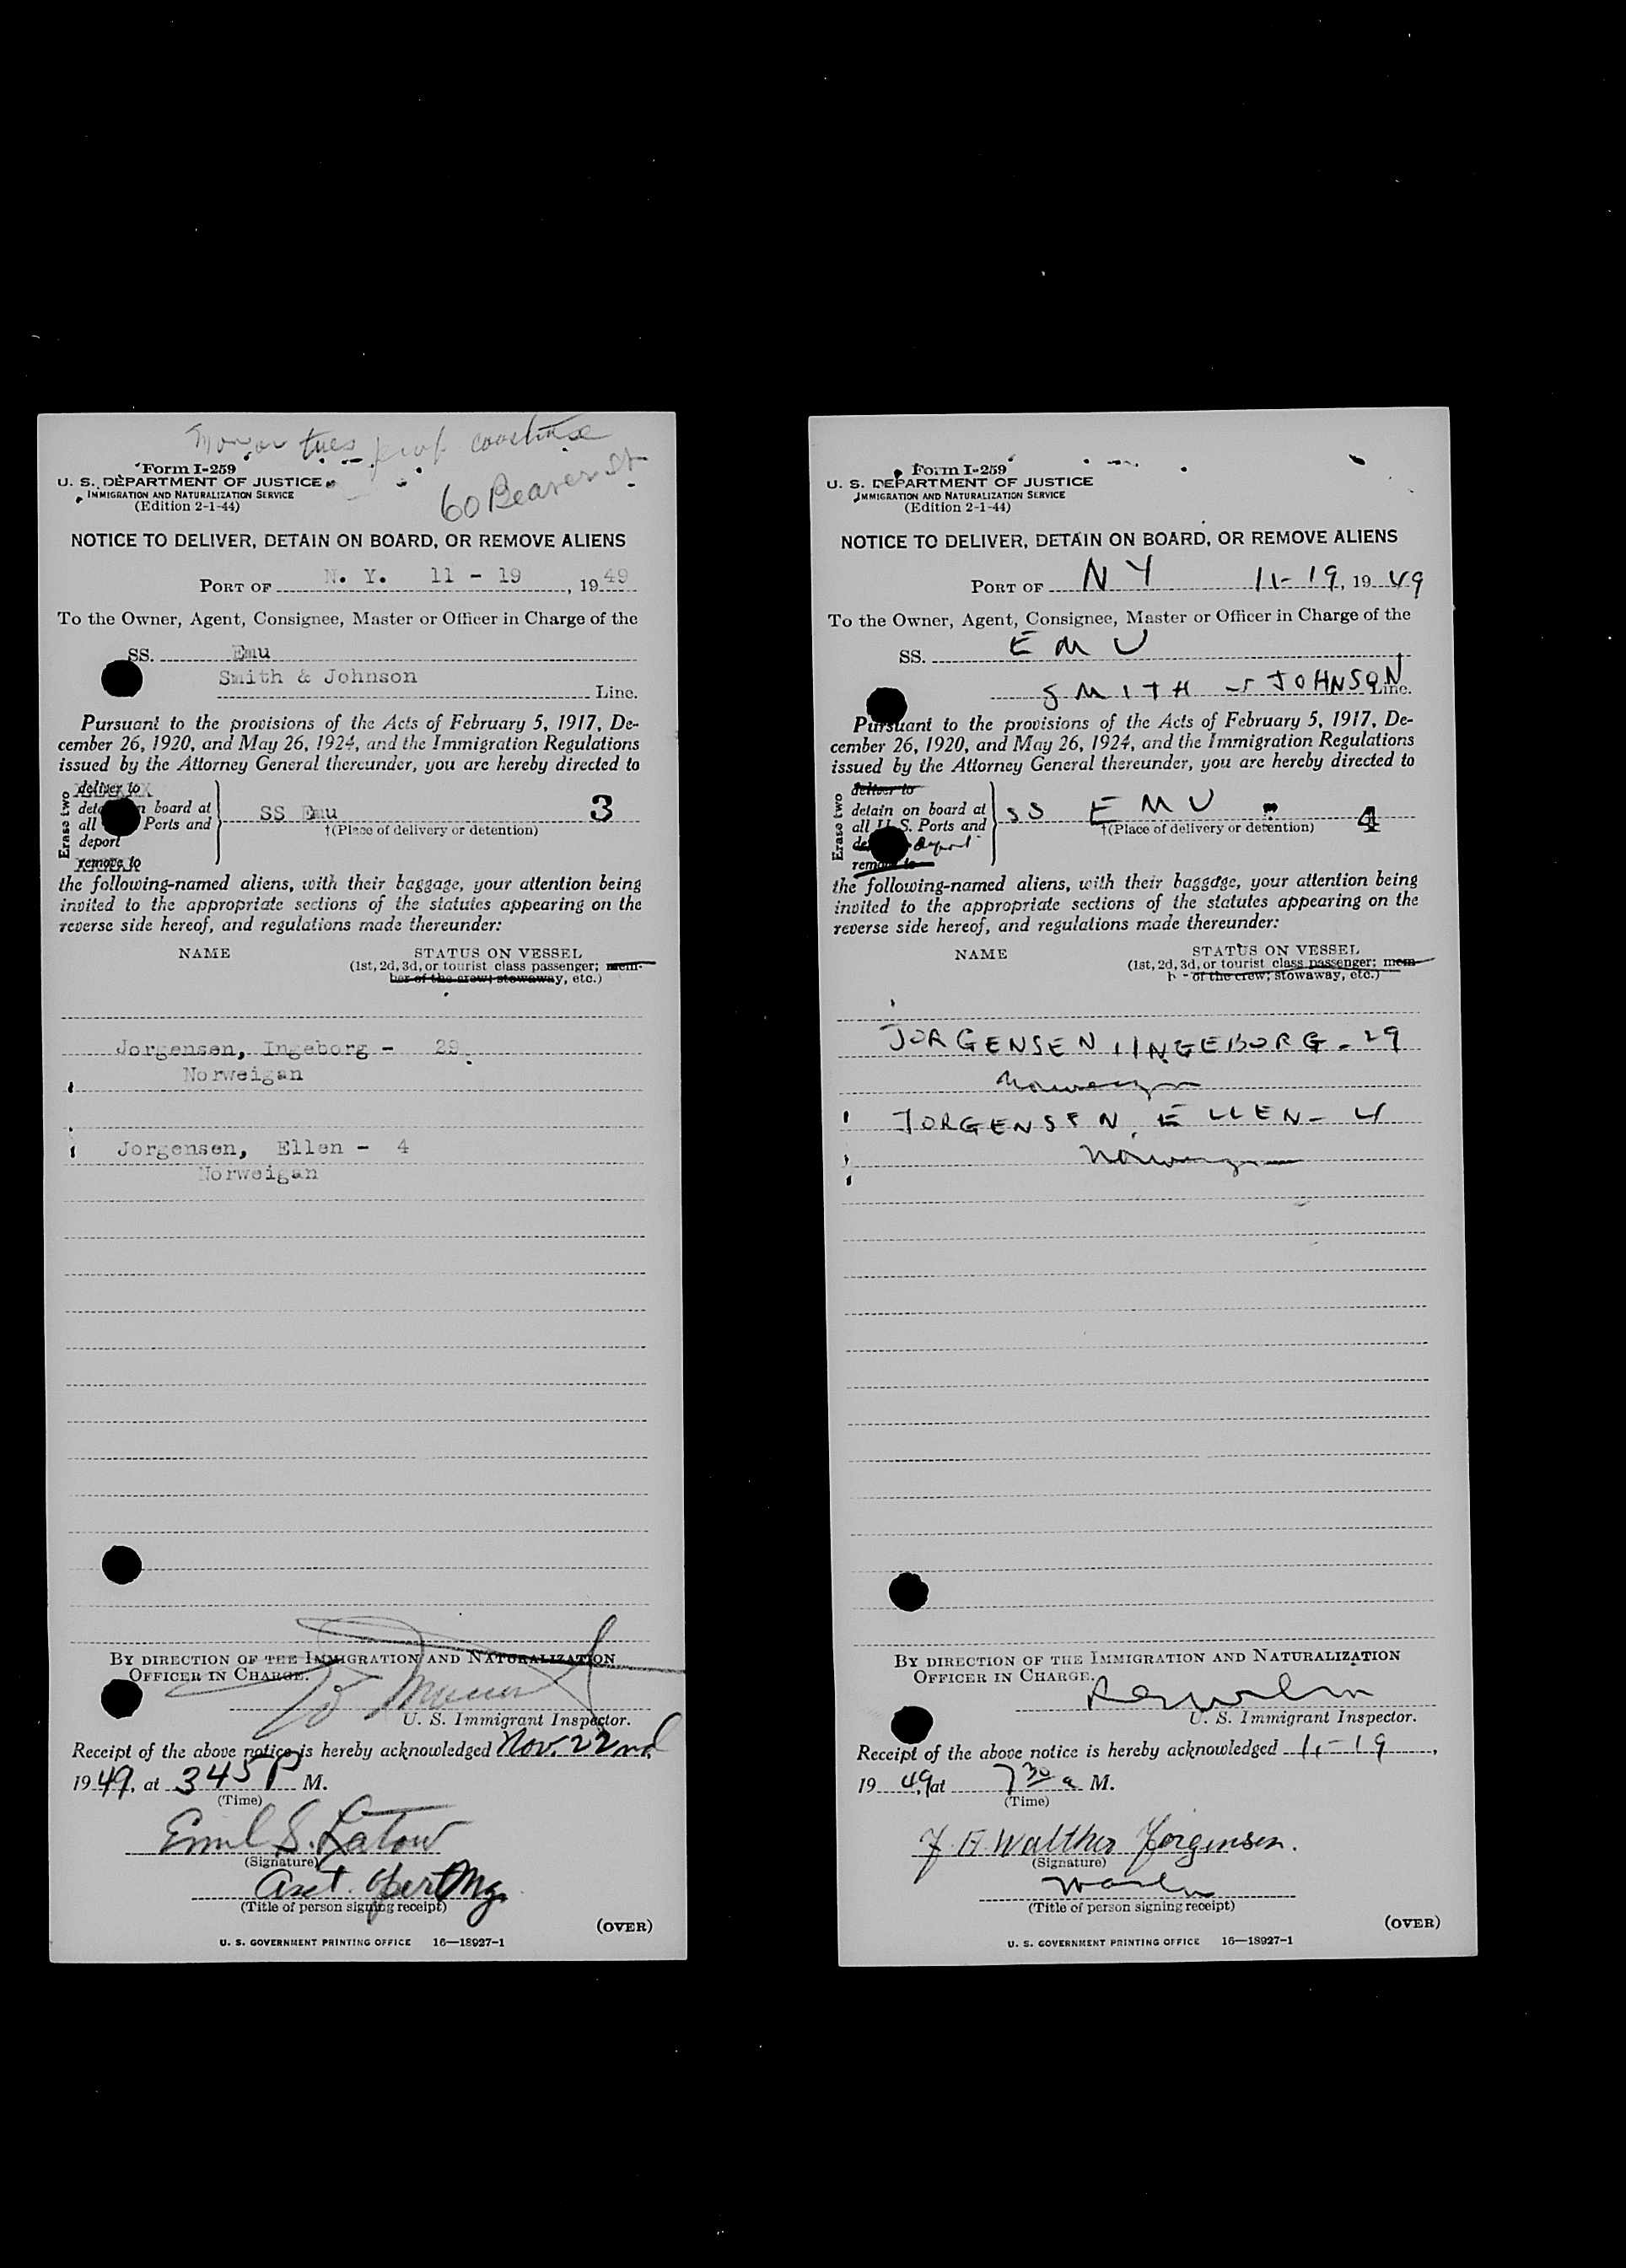 Mon or tues
60 Beaver St
Form I-259
U. S. DEPARTMENT OF JUSTICE
IMMIGRATION AND NATURALIZATION SERVICE
(Edition 2-1-44)
NOTICE TO DELIVER, DETAIN ON BOARD, OR REMOVE ALIENS
PORT OF N. Y. 11 - 19, 1949
To the Owner, Agent, Consignee, Master or Officer in Charge of the
SS. Emu
Smith & Johnson
Line.
Pursuant to the provisions of the Acts of February 5, 1917, De-
cember 26, 1920, and May 26, 1924, and the Immigration Regulations
issued by the Attorney General thereunder, you are hereby directed to
Erase two
deliver to
board at
all Ports and
deport
remove to
SS Emu 3
†(Place of delivery or detention)
the following-named aliens, with their baggage, your attention being
invited to the appropriate sections of the statutes appearing on the
reverse side hereof, and regulations made thereunder:
NAME STATUS ON VESSEL
(1st, 2d, 3d, or tourist class passenger; mem-
ber of the crew; stowaway, etc.)
Jorgensen, Ingeborg - 29
Norweigan
Jorgensen, Ellen - 4
Norweigan
BY DIRECTION OF THE IMMIGRATION AND NATURALIZATION
OFFICER IN CHARGE.
U. S. Immigrant Inspector.
Receipt of the above notice is hereby acknowledged Nov. 22nd
1949, at 345 P M.
(Time)
Emil S. Latow
(Signature)
Asst. Oper Mgr
(Title of person signing receipt)
(OVER)
U. S. GOVERNMENT PRINTING OFFICE 16—18927-1
Form I-259
U. S. DEPARTMENT OF JUSTICE
IMMIGRATION AND NATURALIZATION SERVICE
(Edition 2-1-44)
NOTICE TO DELIVER, DETAIN ON BOARD, OR REMOVE ALIENS
PORT OF N Y 11-19, 1949
To the Owner, Agent, Consignee, Master or Officer in Charge of the
SS. EMU
SMITH & JOHNSON
Line.
Pursuant to the provisions of the Acts of February 5, 1917, De-
cember 26, 1920, and May 26, 1924, and the Immigration Regulations
issued by the Attorney General thereunder, you are hereby directed to
Erase two
deliver to
detain on board at
all U. S. Ports and
deport
remove to
SS EMU 4
†(Place of delivery or detention)
the following-named aliens, with their baggage, your attention being
invited to the appropriate sections of the statutes appearing on the
reverse side hereof, and regulations made thereunder:
NAME STATUS ON VESSEL
(1st, 2d, 3d, or tourist class passenger; mem-
of the crew; stowaway, etc.)
JORGENSEN, INGEBORG - 29
Norwegian
JORGENSEN, ELLEN - 4
Norwegian
BY DIRECTION OF THE IMMIGRATION AND NATURALIZATION
OFFICER IN CHARGE.
U. S. Immigrant Inspector.
Receipt of the above notice is hereby acknowledged 11-19,
1949, at 7 30 a M.
(Time)
Walther Jörgensen.
(Signature)
Master
(Title of person signing receipt)
(OVER)
U. S. GOVERNMENT PRINTING OFFICE 16—18927-1